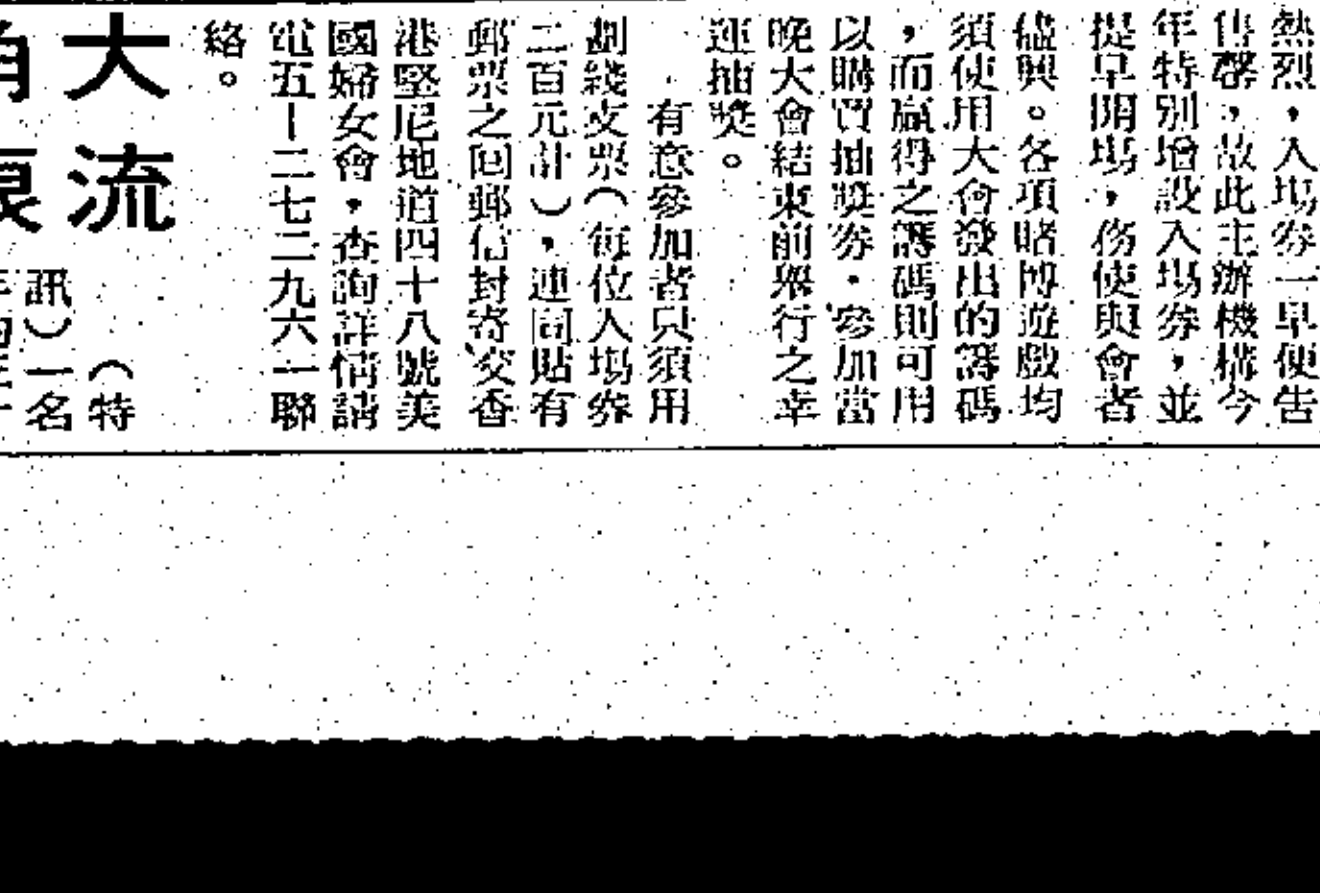 熱烈,入場券一早便告
售罄,故此主辦機構今
年特別增設入場券,並
提早開場,務使與會者
儘興。各項賭博遊戲均
須使用大會發出的籌碼
,而贏得之籌碼則可用
以購買抽獎券,參加當
晚大會結束前舉行之幸
運抽獎。
有意參加者只須用
劃綫支票(每位入場券
二百元計),連同貼有
郵票之回郵信封寄交香
港堅尼地道四十八號美
國婦女會,查詢詳情請
電五—二七二九六一聯
絡。
大流
(特
訊)一名